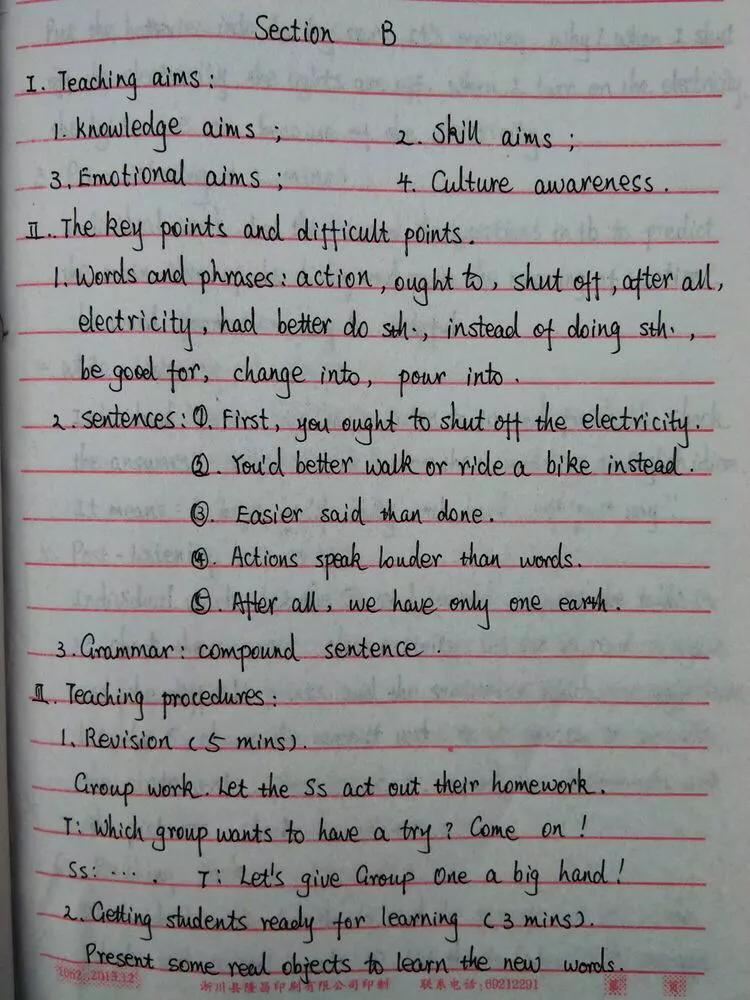 Section B
I. Teaching aims:
1. Knowledge aims; 2. Skill aims;
3. Emotional aims; 4. Culture awareness.
II. The key points and difficult points.
1. Words and phrases: action, ought to, shut off, after all,
electricity, had better do sth., instead of doing sth.,
be good for, change into, pour into.
2. Sentences: ①. First, you ought to shut off the electricity.
②. You'd better walk or ride a bike instead.
③. Easier said than done.
④. Actions speak louder than words.
⑤. After all, we have only one earth.
3. Grammar: compound sentence.
III. Teaching procedures:
1. Revision (5 mins).
Group work. Let the Ss act out their homework.
T: Which group wants to have a try? Come on!
Ss: .... T: Let's give Group One a big hand!
2. Getting students ready for learning (3 mins).
Present some real objects to learn the new words.
淅川县隆昌印刷有限公司印制 联系电话:69212291